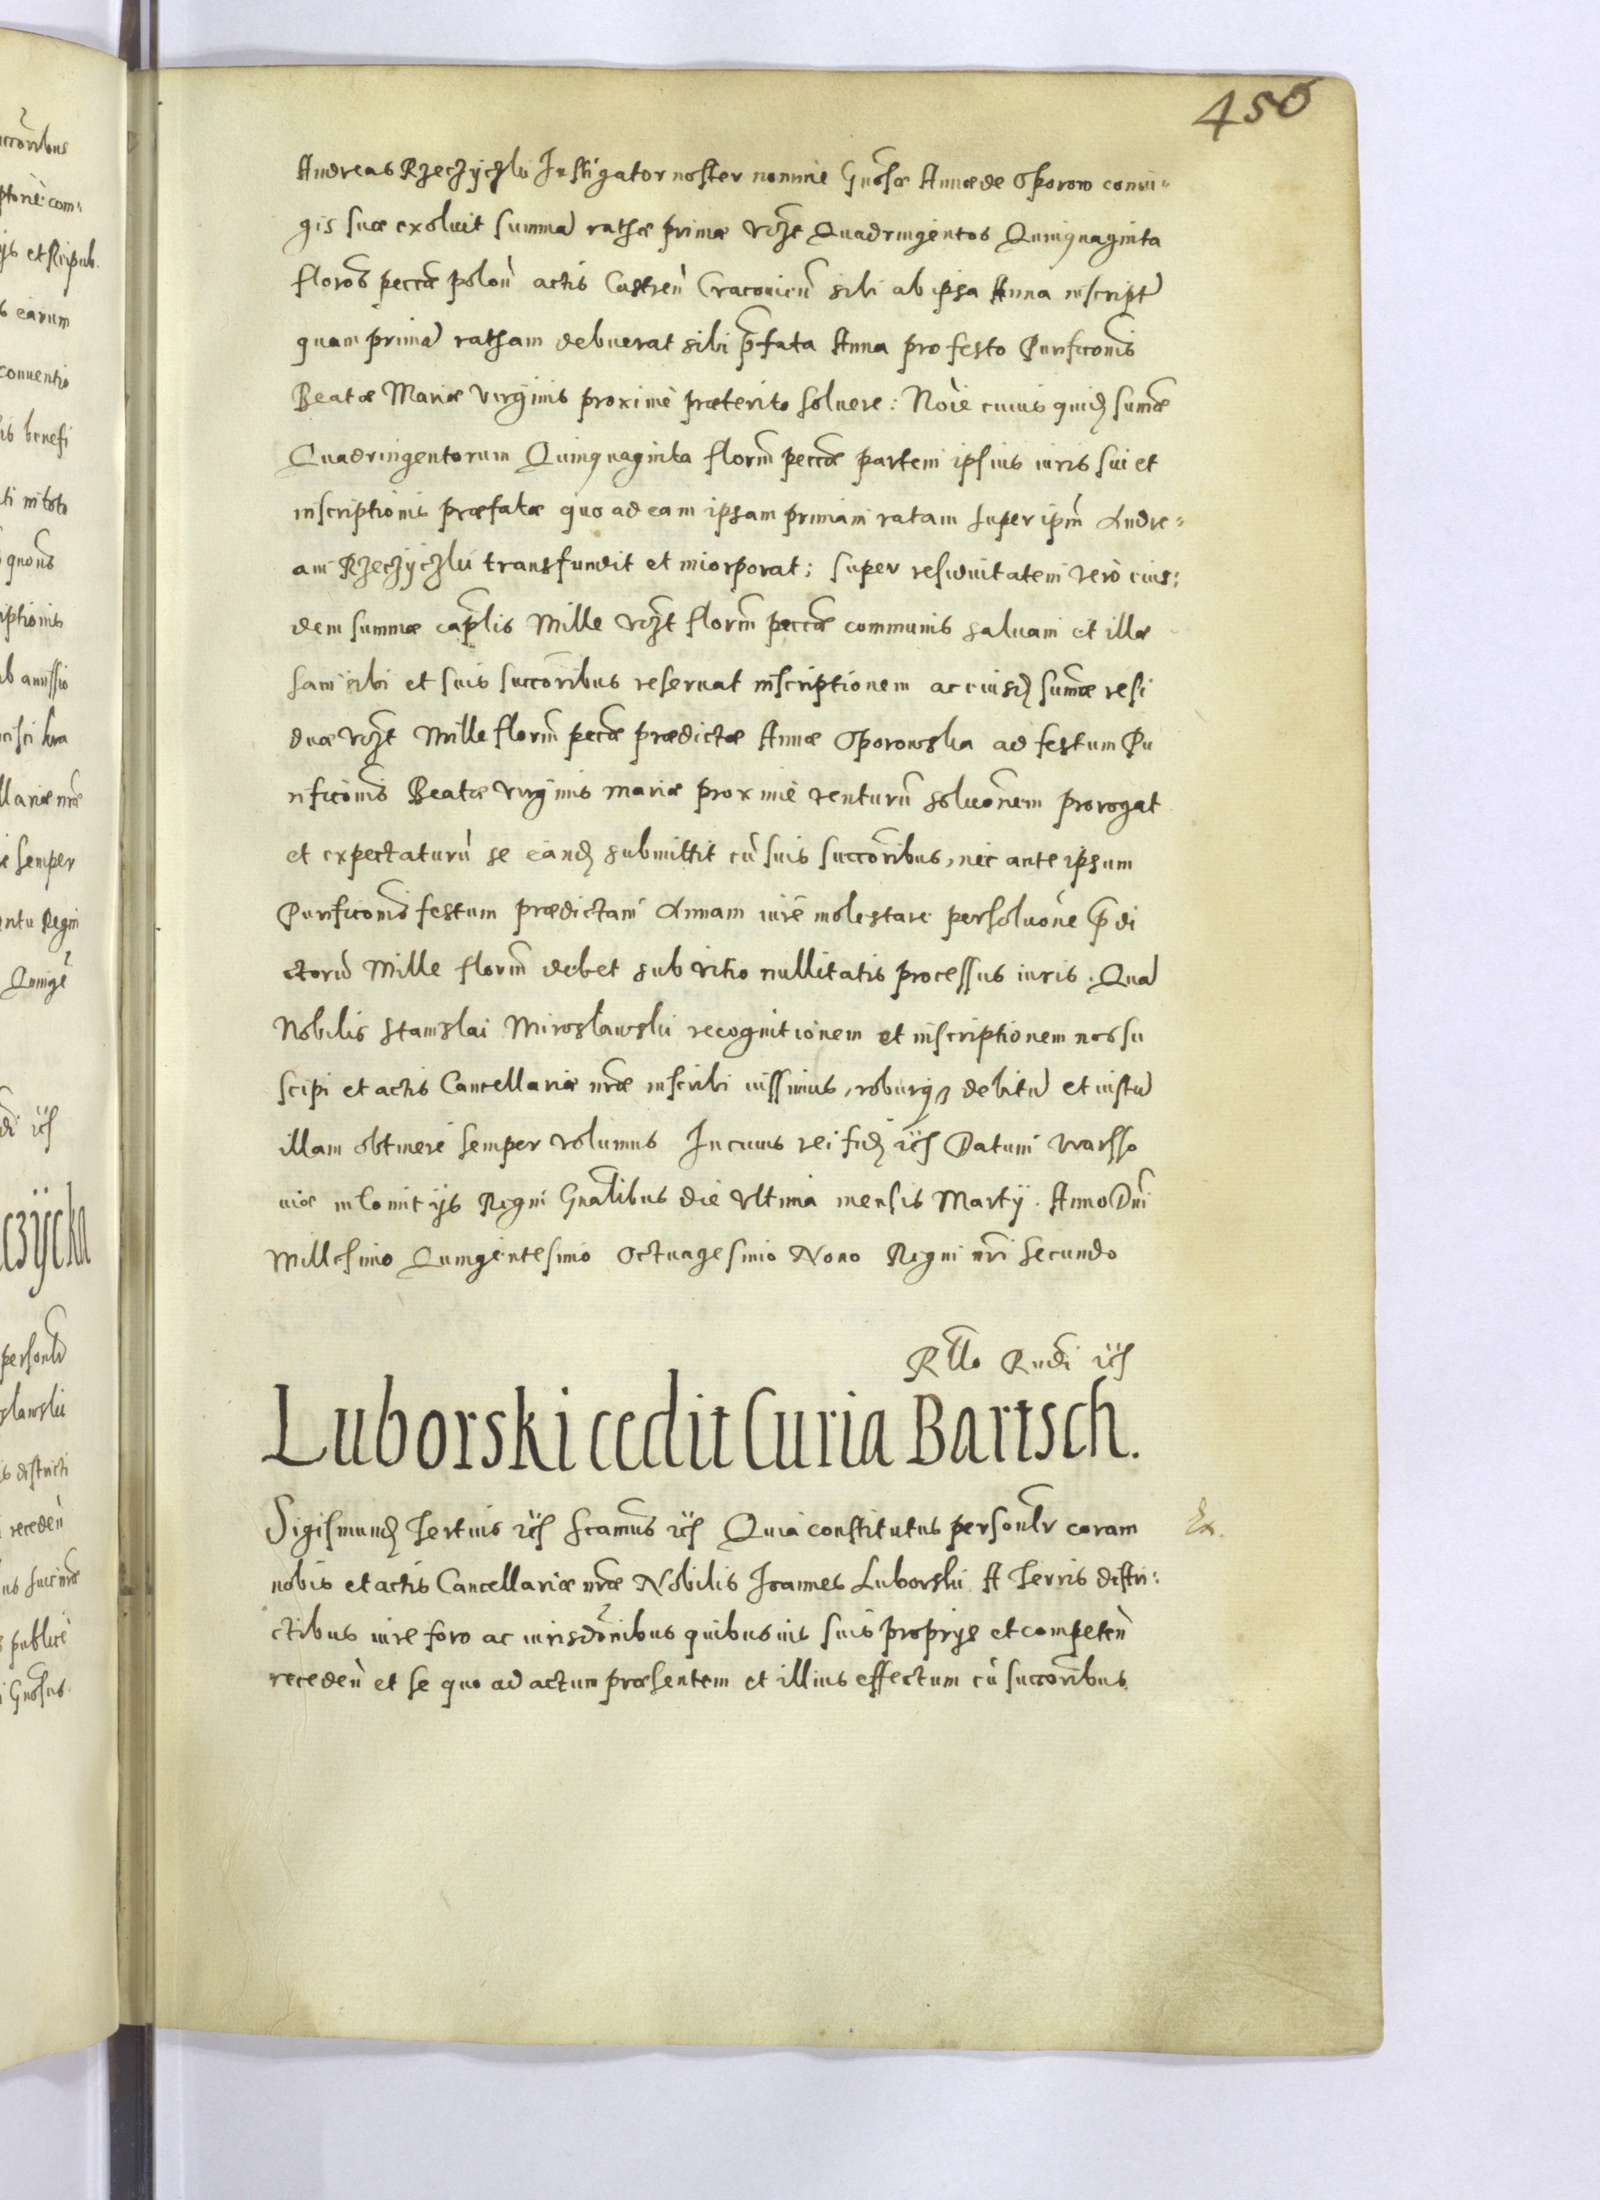 456
Andreas Rzeczyczki Instigator noster nomine Gnosæ Annæ de Oporow coniu-
gis suæ exoluit summã rathæ primæ vczt Quadringentos Quinquaginta
florõs peccæ polon̈ actis Castren̈ Cracouien̈ sibi ab ipsa Anna inscript
quam primã ratham debuerat sibi p̃fata Anna pro festo Purificõnis
Beatæ Mariæ Virginis proximè præterito soluere: Nõie cuius quidẽ sum̃æ
Quadringentorum Quinquaginta florm̃ peccæ partem ipsius iuris sui et
inscriptionis præfatæ quo ad eam ipsam primam ratam super ipm̃ Andre-
am Rzeczyczki transfundit et incorporat; super residuitatem verò eius:
dem summæ cap̃lis Mille vczt florm̃ peccæ communis saluam et illæ
sam sibi et suis succoribus reseruat inscriptionem ac eiusdẽ sum̃æ resi
duæ vczt Mille florm̃ peccæ prædictæ Annæ Oporowska ad festum Pu
rificõnis Beatæ Virginis Mariæ proximè venturũ soluõnem prorogat
et expectaturũ se eandẽ submittit cũ suis succoribus, nec ante ipsum
Purificõnis festum prædictam Annam iure molestare persoluõne p̃di
ctorũ Mille florm̃ debet sub vitio nullitatis processus iuris. Quã
Nobilis Stanislai Miroslawski recognitionem et inscriptionem nos su
scipi et actis Cancellariæ nr̃æ inscribi iussimus, roburq3 debitũ et iustũ
illam obtinere semper volumus In cuius rei fidẽ ic̈ Datum Warsso
uiæ in Comitijs Regni Gnãlibus die vltima mensis Martij. Anno Dni
Millesimo Quingentesimo Octuagesimo Nono Regni nr̃i Secundo
Rllo Rudi ic̈
Luborski cedit Curia Bartsch.
Sigismundẽ Tertius ic̈ Scamus ic̈ Quia constitutus personlr coram
Ex.
nobis et actis Cancellariæ nr̃æ Nobilis Ioannes Luborski A Terris distri:
ctibus iure foro ac iurisdõnibus quibusuis suis proprijs et competen̈
receden̈ et se quo ad actum præsentem et illius effectum cũ succoribus